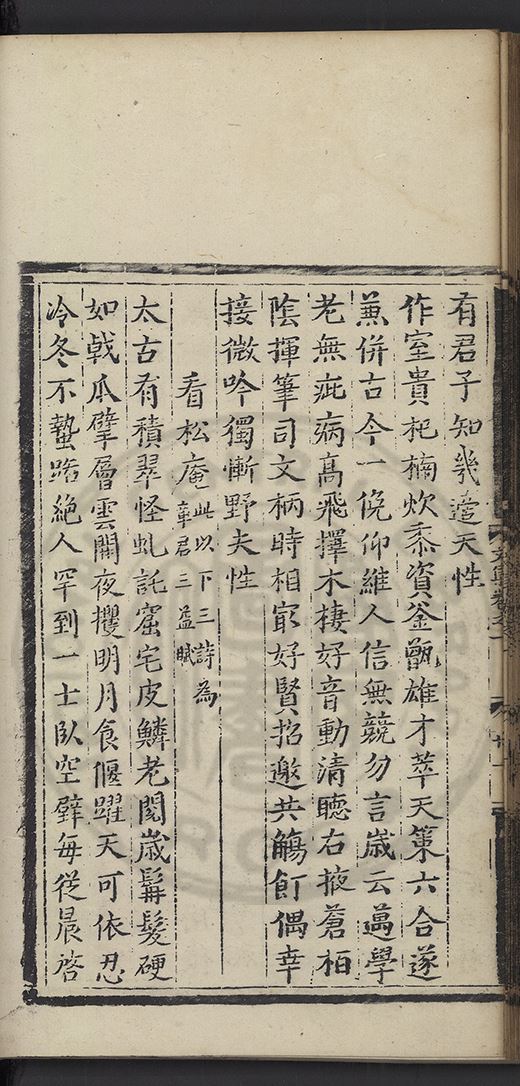 有君子知幾遣天性
作室貴杞楠炊黍資釜甑雄才萃天策六合遂
蒹併古今一俛仰維人信無競勿言歲云邁學
老無疵病高飛擇木棲好音動清聽右掖蒼柏
陰揮筆司文柄時相㝡好賢招邀共觴飣偶幸
接微吟獨慚野夫性
看松庵此以下三詩為
章君三益賦
太古有積翠怪虬託窟宅皮鱗老閱歲髯髮硬
如戟爪擘層雲開夜攫明月食偃躍天可依忍
冷冬不蟄路絕人罕到一士臥空壁每從晨啓